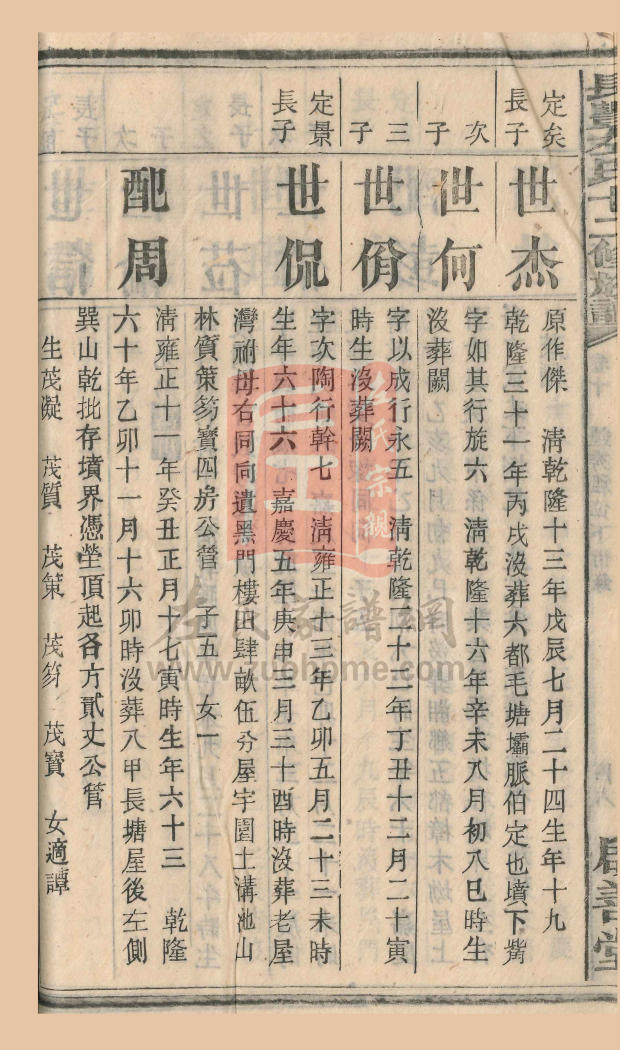 定矣長子
世杰
原作傑　清乾隆十三年戊辰七月二十四生年十九
乾隆三十一年丙戌沒葬六都毛塘壩脈伯定也墳下觜
次子
世何
字如其行旋六　清乾隆十六年辛未八月初八巳時生
沒葬闕
三子
世佾
字以成行永五　清乾隆二十二年丁丑十二月二十寅
時生沒葬闕
定景長子
世侃
字次陶行幹七　清雍正十三年乙卯五月二十三未時
生年六十六　嘉慶五年庚申三月三十酉時沒葬老屋
灣祔母右同向遺黑門樓田肆畝伍分屋宇園土溝池山
林質策笏寶四房公管　子五　女一
配周
清雍正十一年癸丑正月十七寅時生年六十三　乾隆
六十年乙卯十一月十六卯時沒葬八甲長塘屋後左側
巽山乾批存墳界憑塋頂起各方貳丈公管
生茂凝　茂質　茂策　茂笏　茂寶　女適譚
修族譜
善堂
左氏宗親
左氏家譜網
www.zuohome.com